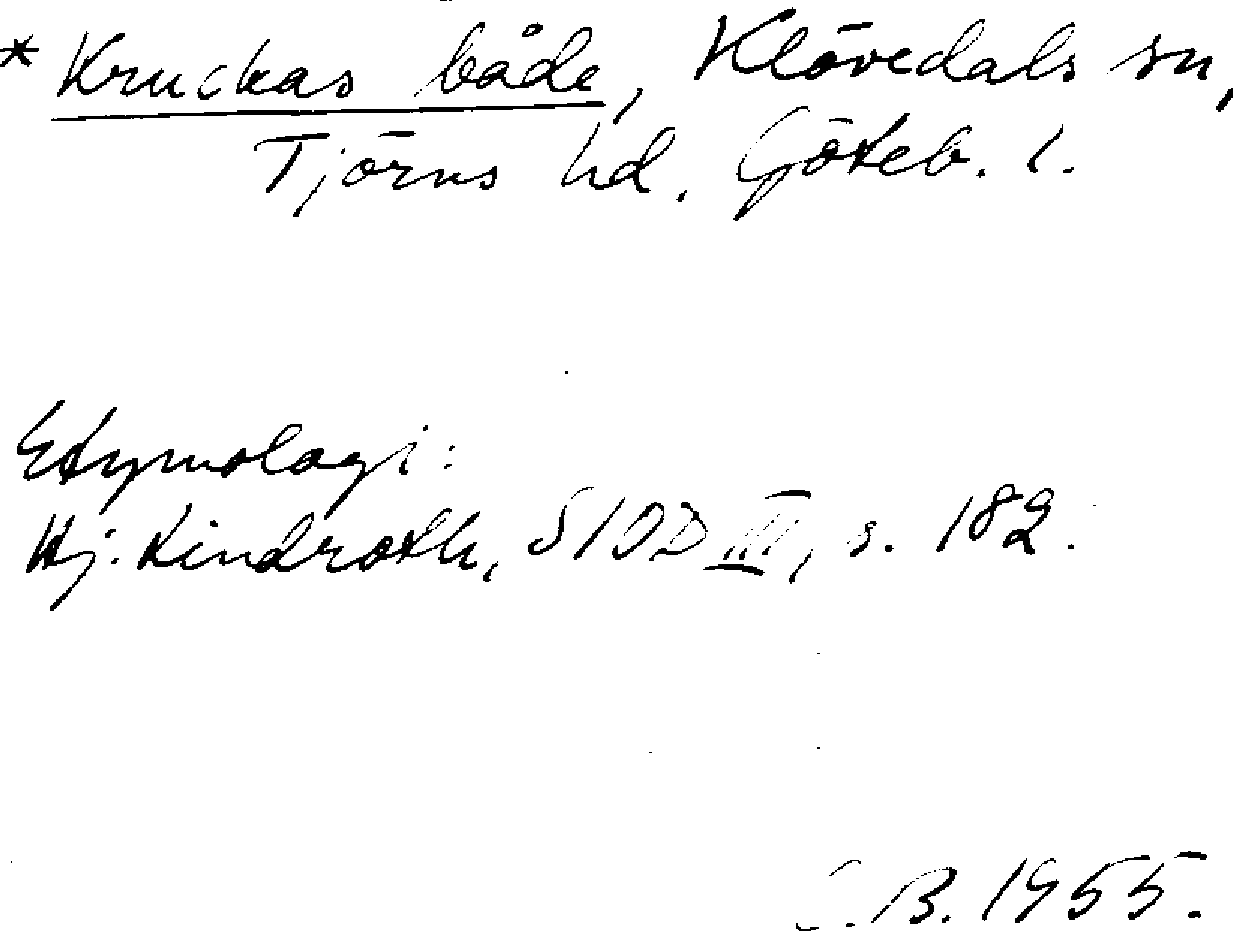 * Kruckas både, Klövedals sn,
Tjörns hd. Göteb. l.
Etymologi:
Hj. Lindroth, SIOD III, s. 182.
B. 1955.